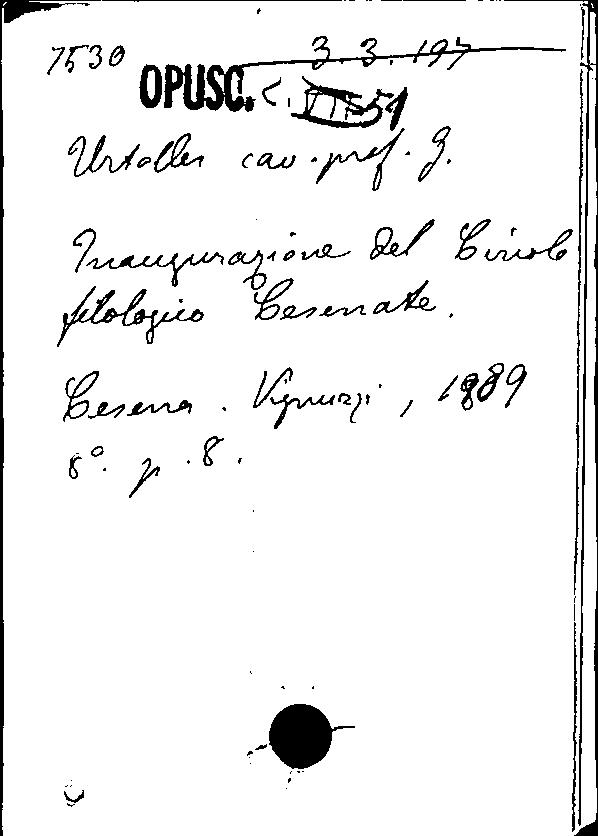 7530 3.3.197
OPUSC. C. 51
Urtoller cav. prof. G.
Inaugurazione del Circolo
filologico Cesenate.
Cesena. Vignuzzi, 1889
8°. p. 8.